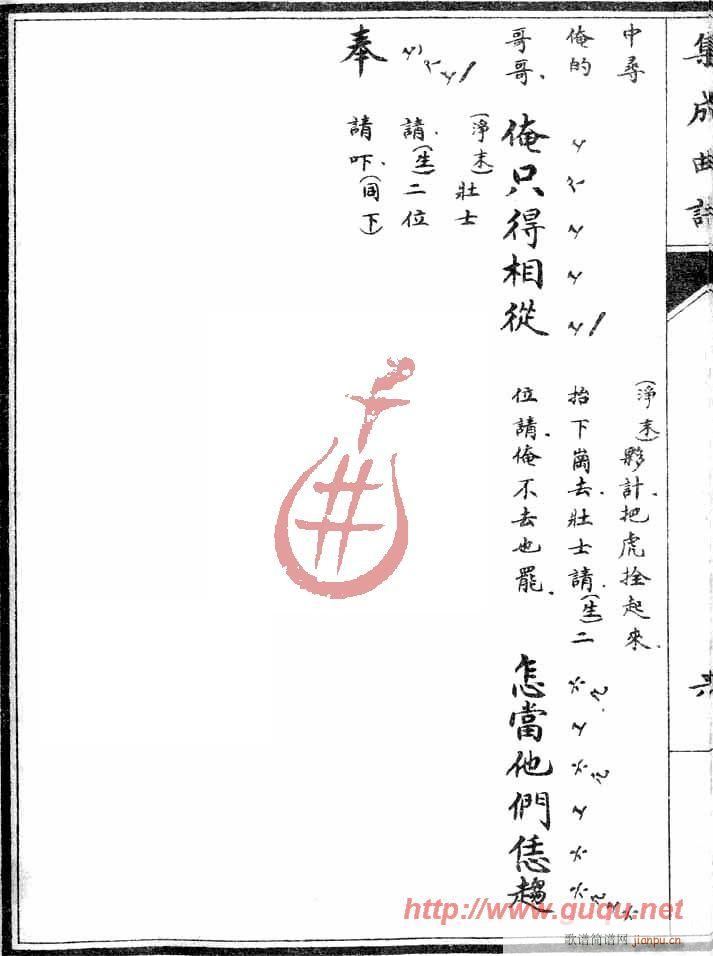 集成曲譜
中尋
俺的
哥哥、
俺只得相從
(淨末)夥計、把虎拴起來、
抬下崗去、壯士請、(生)二
位請、俺不去也罷、
怎當他們恁趨
奉
(淨末)壯士
請、(生)二位
請吓、(同下)
http://www.guqu.net
歌谱简谱网 jianpu.cn